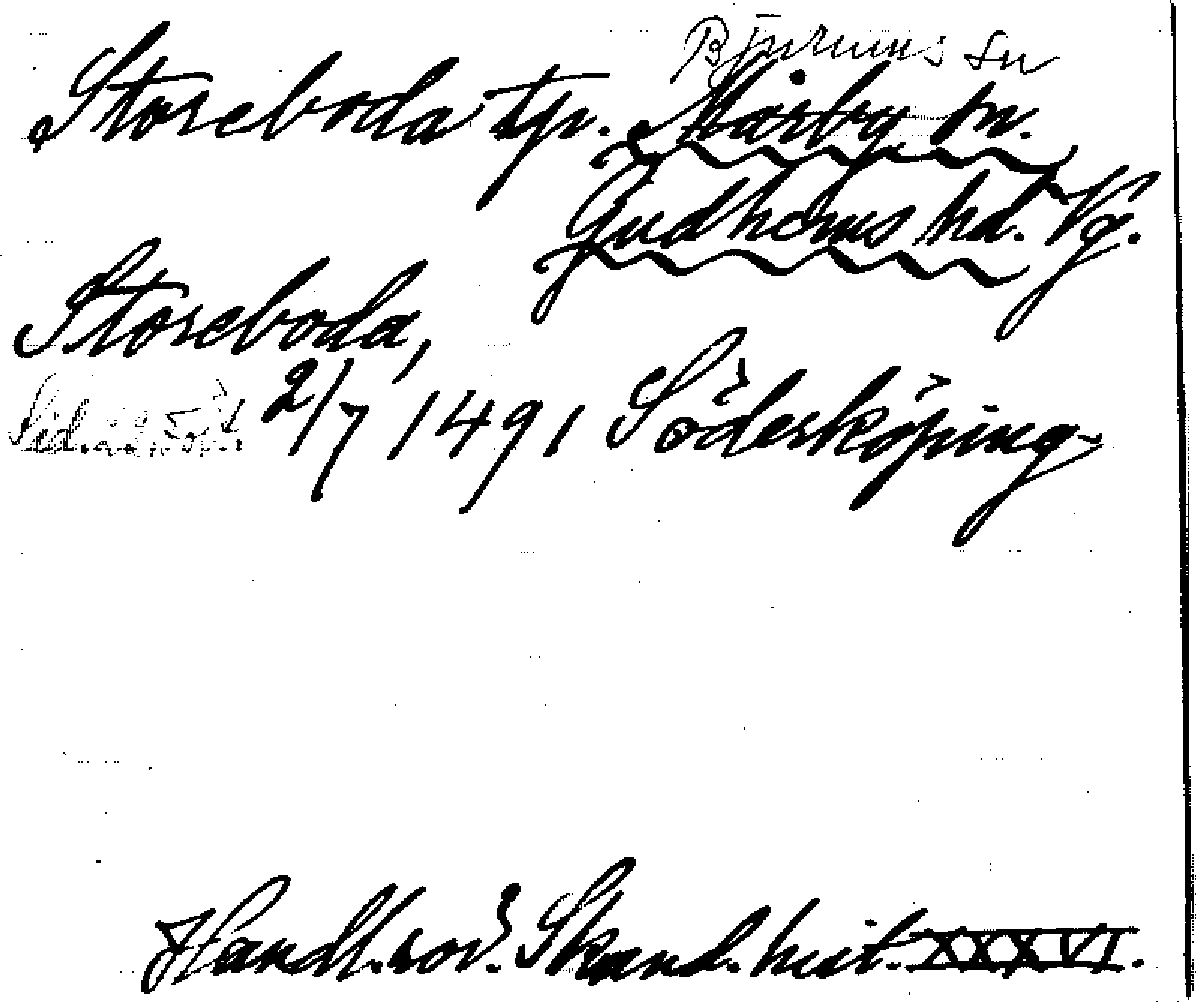 Bjurums sn
Storeboda tp. Marby sn.
Gudhems hd. Vg.
Storeboda,
2/7 1491 Söderköping
Handl. rör. Skand. hist. XXXVI.